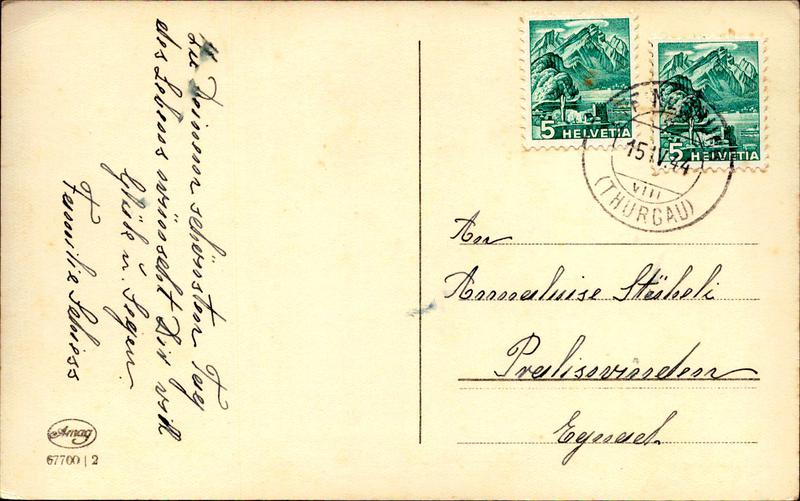 Zu Deinem schönsten Tag
des Lebens wünscht Dir viel
Glück u. Segen.
Familie Schiess
Amag
67700 | 2
5 HELVETIA
5 HELVETIA
15 IV 44
VIII
(THURGAU)
An
Annaluise Stäheli
Praliswinden
Egnach